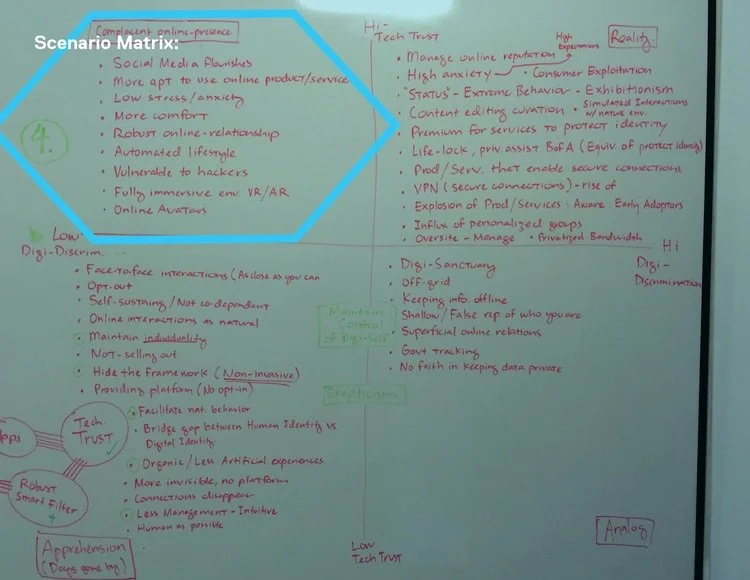 Scenario Matrix:
Complacent online-presence
• Social Media flourishes
• More apt to use online product/service
• Low stress/anxiety
• More comfort
• Robust online-relationship
• Automated lifestyle
• Vulnerable to hackers
• Fully immersive env. VR/AR
• Online Avatars
4.
Hi-
Tech Trust
High
Expectations
Reality
• Manage online reputation
• High anxiety
• Consumer Exploitation
• "STATUS" - Extreme Behavior - Exhibitionism
• Content editing curation
• Simulated Interactions
w/ nature env.
• Premium for services to protect identity
• Life-lock, priv. assist BofA (Equiv of protect identity)
• Prod/Serv. that enable secure connections
• VPN (secure connections) - rise of
• Explosion of Prod/Services: Aware: Early Adoptors
• Influx of personalized groups
• Oversite - Manage • Privatized Bandwidth
Low
Digi-Discrim...
Hi
Digi-
Discrimination
• Face-to face interactions (As close as you can
• Opt-out
• Self-sustaing/Not co-dependent
• Online interactions as natural
• Maintain individuality
• Not-selling out
• Hide the framework (Non-invasive)
• Providing platform (No opt-in)
• Facilitate nat. behavior
• Bridge gap between Human Identity vs
Digital Identity
• Organic/Less Artificial experiences
• More invisible, no platform
• Connections disappear
• Less Management - Intuitive
• Human as possible
Apps
Tech.
Trust
Robust
Smart Filter
Apprehension
(Days gone by)
• Digi-Sanctuary
• Off-grid
• Keeping info. offline
• Shallow/False rep of who you are
• Superficial online relations
• Govt. tracking
• No faith in keeping data private
Maintain
Control
of Digi-Self
Skepticism
Low
Tech Trust
Analog